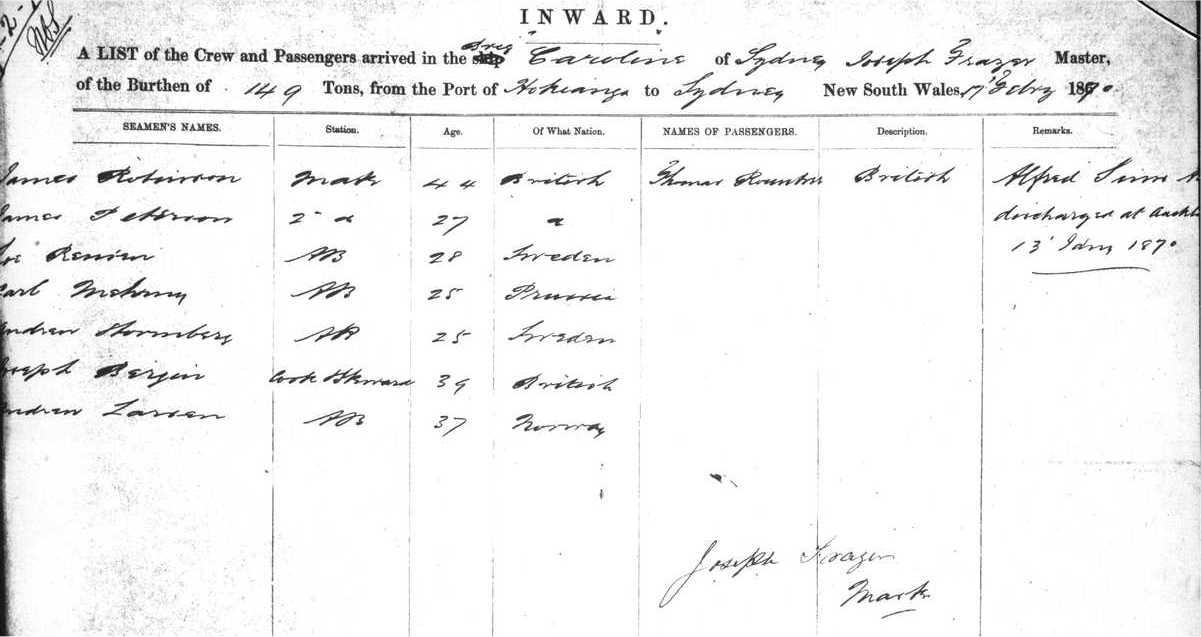 INWARD.
A LIST of the Crew and Passengers arrived in the Brig Caroline of Sydney Joseph Frazer Master,
of the Burthen of 149 Tons, from the Port of Hokianga to Sydney New South Wales, 17 Feby 1870
SEAMEN'S NAMES. Station. Age. Of What Nation. NAMES OF PASSENGERS. Description. Remarks.
James Robinson Mate 44 British Thomas Rountree British Alfred Sims
James Peterson 2 " 27 " discharged at Auckl
Joe 28 Sweden 13 Jany 1870
Carl AB 25 Prussia
Andrew Stormberg AB 25 Sweden
Joseph Bergin Cook & Steward 39 British
Andrew Larsen AB 37 Norway
Joseph Frazer
Master